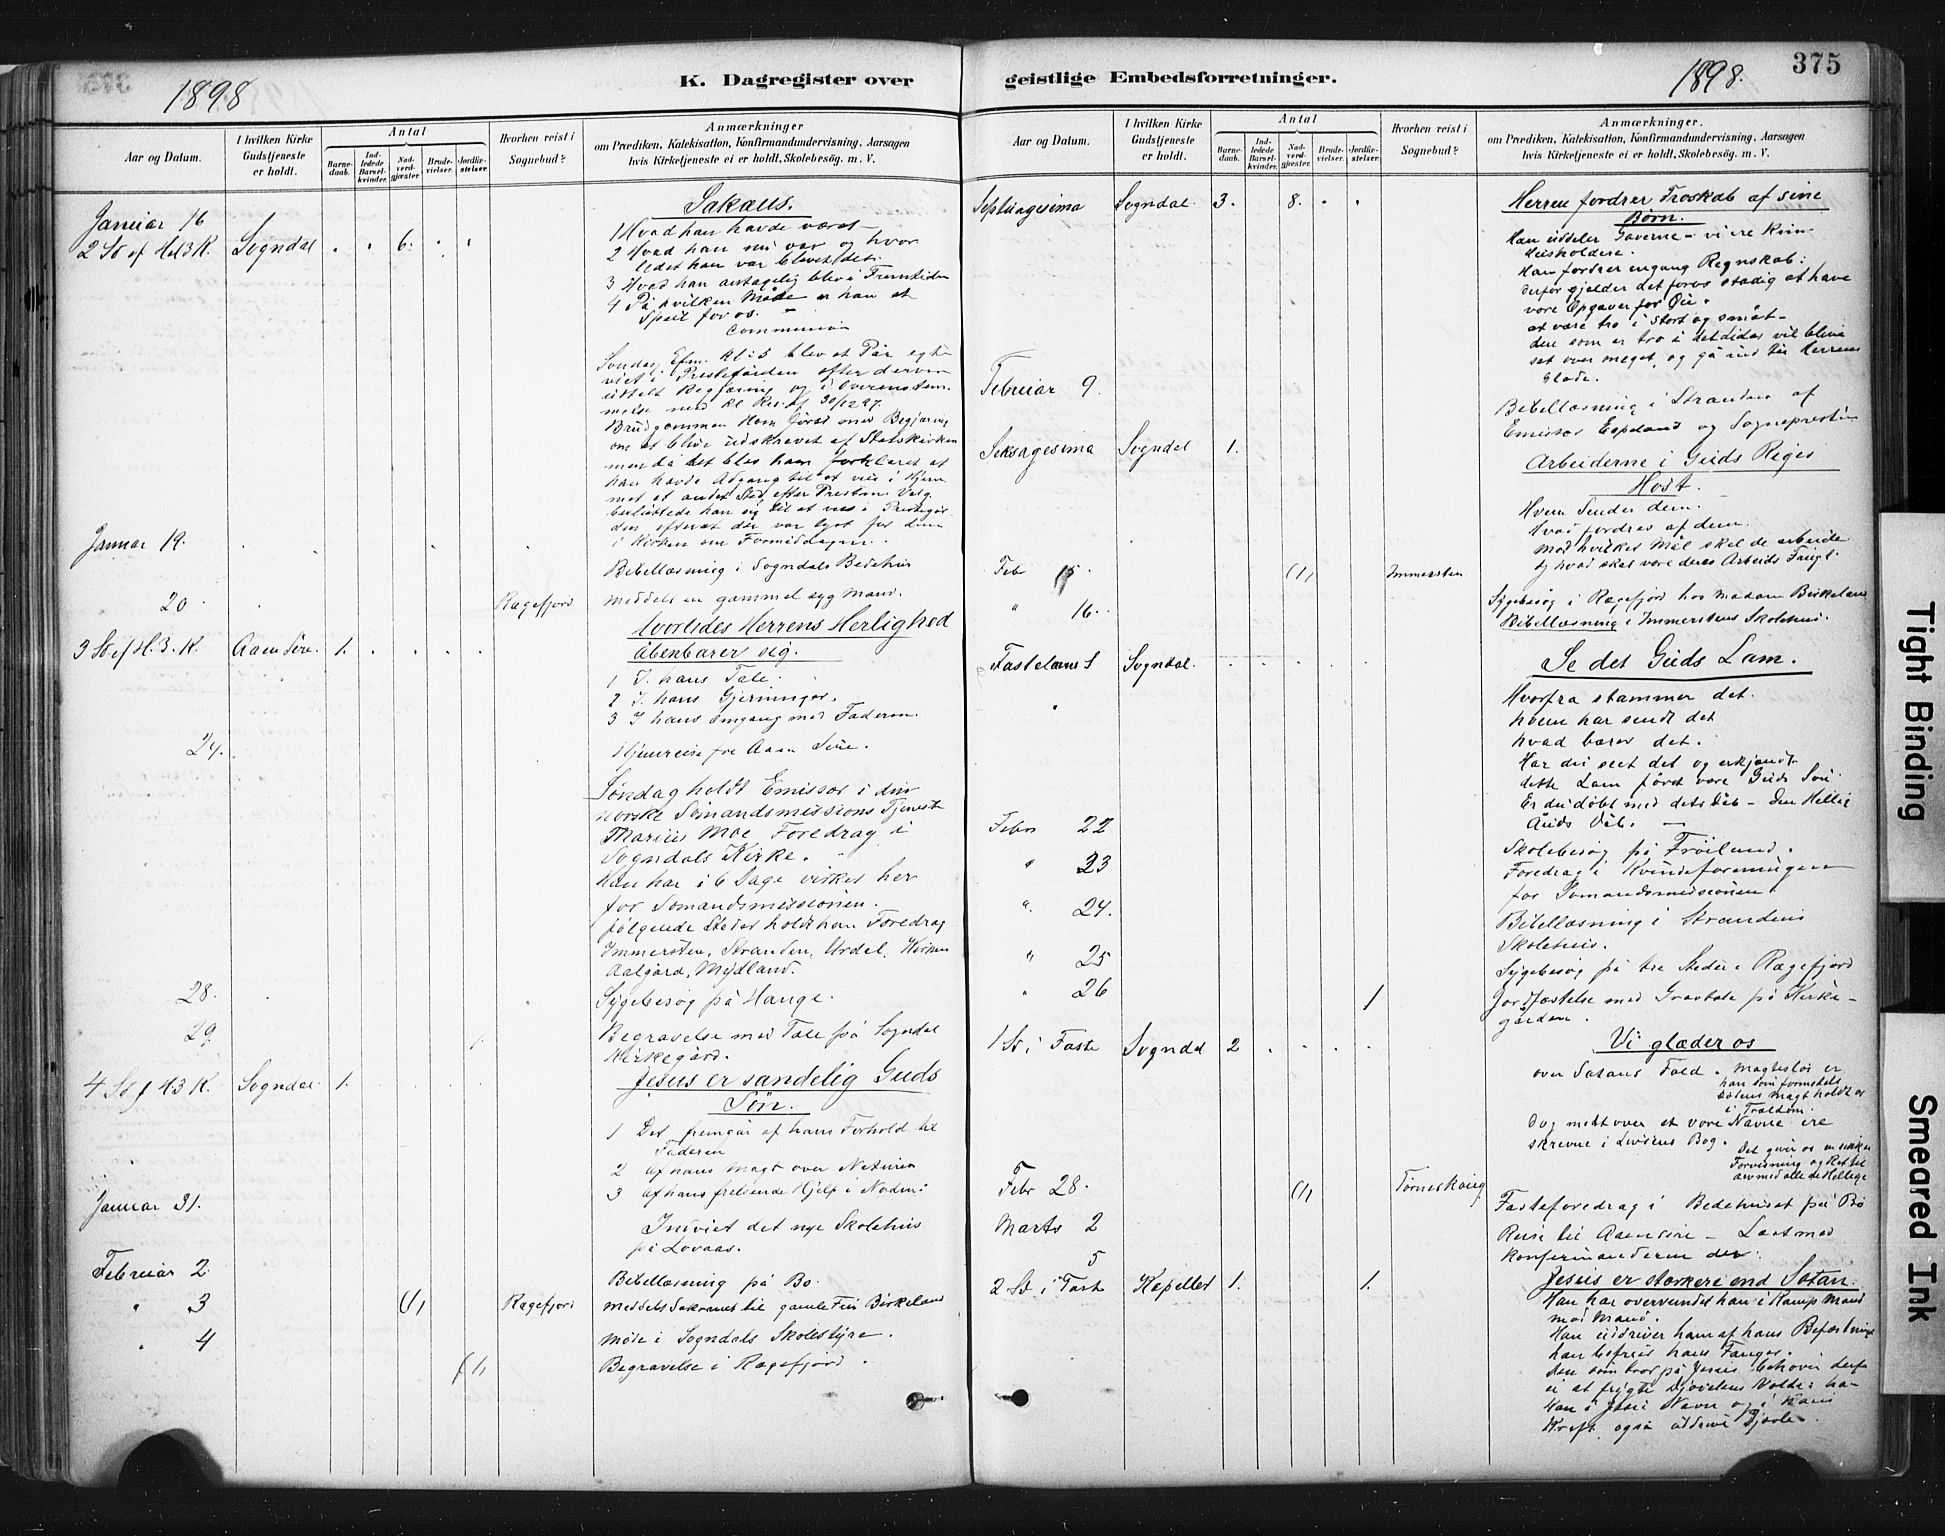 375
1898
K. Dagregister over
geistlige Embedsforretninger.
1898.
Aar og Datum.
I hvilken Kirke Gudstjeneste er holdt.
Antal
Barnedaab.
Indledede Barselkvinder.
Nadverdgjæster.
Brudevielser.
Jordfæstelser.
Hvorhen reist i Sognebud?
Anmærkninger
om Prædiken, Katekisation, Konfirmandundervisning, Aarsagen
hvis Kirketjeneste ei er holdt, Skolebesög. m. V.
Januar 16
2 S. ef Hel3K.
Sogndal
6.
Sakæus.
1 Hvad han havde været
2 Hvad han nu var og hvor
ledes han var blevet det.
3 Hvad han antagelig blev i Fremtiden
4 På hvilken Måde er han et
Speil for os.
Communion
Søndag Efm. Kl: 5 blev et Par egte
viet i Prestegården efter derom
Brudgommen
om at blive udskrevet af Statskirken
men då det blev ham forklaret at
han havde Adgang til at vies i Hjem
met et andet Sted efter Prestens Valg
besluttede han sig til at vies i Prestegår
den, efterat der var lyst for dem
i Kirken om Formiddagen.
Januar 19.
Bibellæsning i Sogndals Bedehus
20
Rægefjord
meddele en gammel syg Mand.
3 S. ef H.3.K.
Aaen Sire.
1.
Hvorledes Herrens Herlighed
åbenbarer sig.
1 I hans Tale.
2 I hans Gjerninger.
3 I hans Omgang med Faderen.
24.
Hjemreise fra Aaen Sire.
Søndag holdt Emissær i den
norske Sømandsmissions Tjeneste
Marius Moe Foredrag i
Sogndals Kirke.
Han har i 6 Dage virket her
for Sømandsmissionen.
følgende Steder holdt han Foredrag
Immersten, Stranden, Urdal, Kirken
Aalgård, Mydland.
28.
Sygebesøg på Hauge.
29.
Begravelse med Tale på Sogndal
Kirkegård.
4 S. f H3 K.
Sogndal
1.
Jesus er sandelig Guds
Søn.
1 Det fremgår af hans Forhold til
Faderen
2 af hans Magt over Naturen
3 af hans frelsende Hjelp i Nøden:
Januar 31.
Indviet det nye Skolehus
på Lovaas.
Februar 2
Bibellæsning på Bø.
" 3
(1,
Rægefjord
Birkeland
" 4
Møde i Sogndals Skolestyre.
(1,
Begravelse i Rægefjord.
Aar og Datum.
I hvilken Kirke Gudstjeneste er holdt.
Antal
Barnedaab.
Indledede Barselkvinder.
Nadverdgjæster.
Brudevielser.
Jordfæstelser.
Hvorhen reist i Sognebud?
Anmærkninger.
om Prædiken, Katekisation, Konfirmandundervisning, Aarsagen
hvis Kirketjeneste ei er holdt, Skolebesög. m. V.
Septuagesima
Sogndal
3.
8.
Herren fordrer Troskab af sine
Børn.
Han uddeler Gaverne - vi ere kun
Husholdere.
Han fordrer engang Regnskab:
derfor gjelder det for os stadig at have
vore Opgaver for Øie.
at være tro i stort og småt -
den som er tro i det lidet vil blive
sat over meget, og gå ind til Herrens
Glæde.
Februar 9.
Bibellæsning i Stranden af
Emissær Espeland og Sognepresten
Seksagesima
Sogndal
1.
Arbeiderne i Guds Riges
Høst.
Hvem Sender dem.
Hvad fordres af dem.
Mod hvilket Mål skal de arbeide
og hvad skal være deres Arbeids Frugt.
Feb 15.
(1,
Immersten
Sygebesøg i Rægefjord hos Madam Birkeland
" 16.
Bibellæsning i Immerstens Skolehus.
Fastelavns S
Sogndal.
Se det Guds Lam.
Hvorfra stammer det.
hvem har sendt det
hvad bærer det.
Har du seet det og erkjendt
dette Lam først være Guds Søn
Er du døbt med dets Dåb - Den Hellig
Ånds Dåb.
Febr 22
Skolebesøg på Frøilund.
" 23
Foredrag i Kvindeforeningen
for Sømandsmissionen.
" 24.
Bibellæsning i Strandens
Skolehus.
" 25
Sygebesøg på tre Steder i Rægefjord
" 26
1
Jordfæstelse med Gravtale på Kirke-
gården.
1 S. i Faste
Sogndal
2
Vi glæder os
over Satans Fald.
Magtesløs er
han som formedels
Dødens Magt holdt os
i Trældom.
Dog mest over at vore Navne ere
skrevne i Livsens Bog.
Det giver os en sikker
Forvisning og Ret til
arv med alle de Hellige
Febr 28.
(1,
Tørneskoug
Fasteforedrag i Bedehuset på Bø
Marts 2
Reise til Aaensire - Læst med
5
Konfirmanderne der.
2 S. i Fast
Kapellet
1.
1.
Jesus er stærkere end Satan.
Han har overvundet han i Kamp Mand
mod Mand.
Han uddriver ham af hans Befæstninge
han befrier hans Fanger.
Den som tror på Jesus behøver derfor
ei at frygte Djævelens Vælde: han
kan i Jesu Navn og i hans
Kraft også uddrive Djævle.
Tight Binding
Smeared Ink